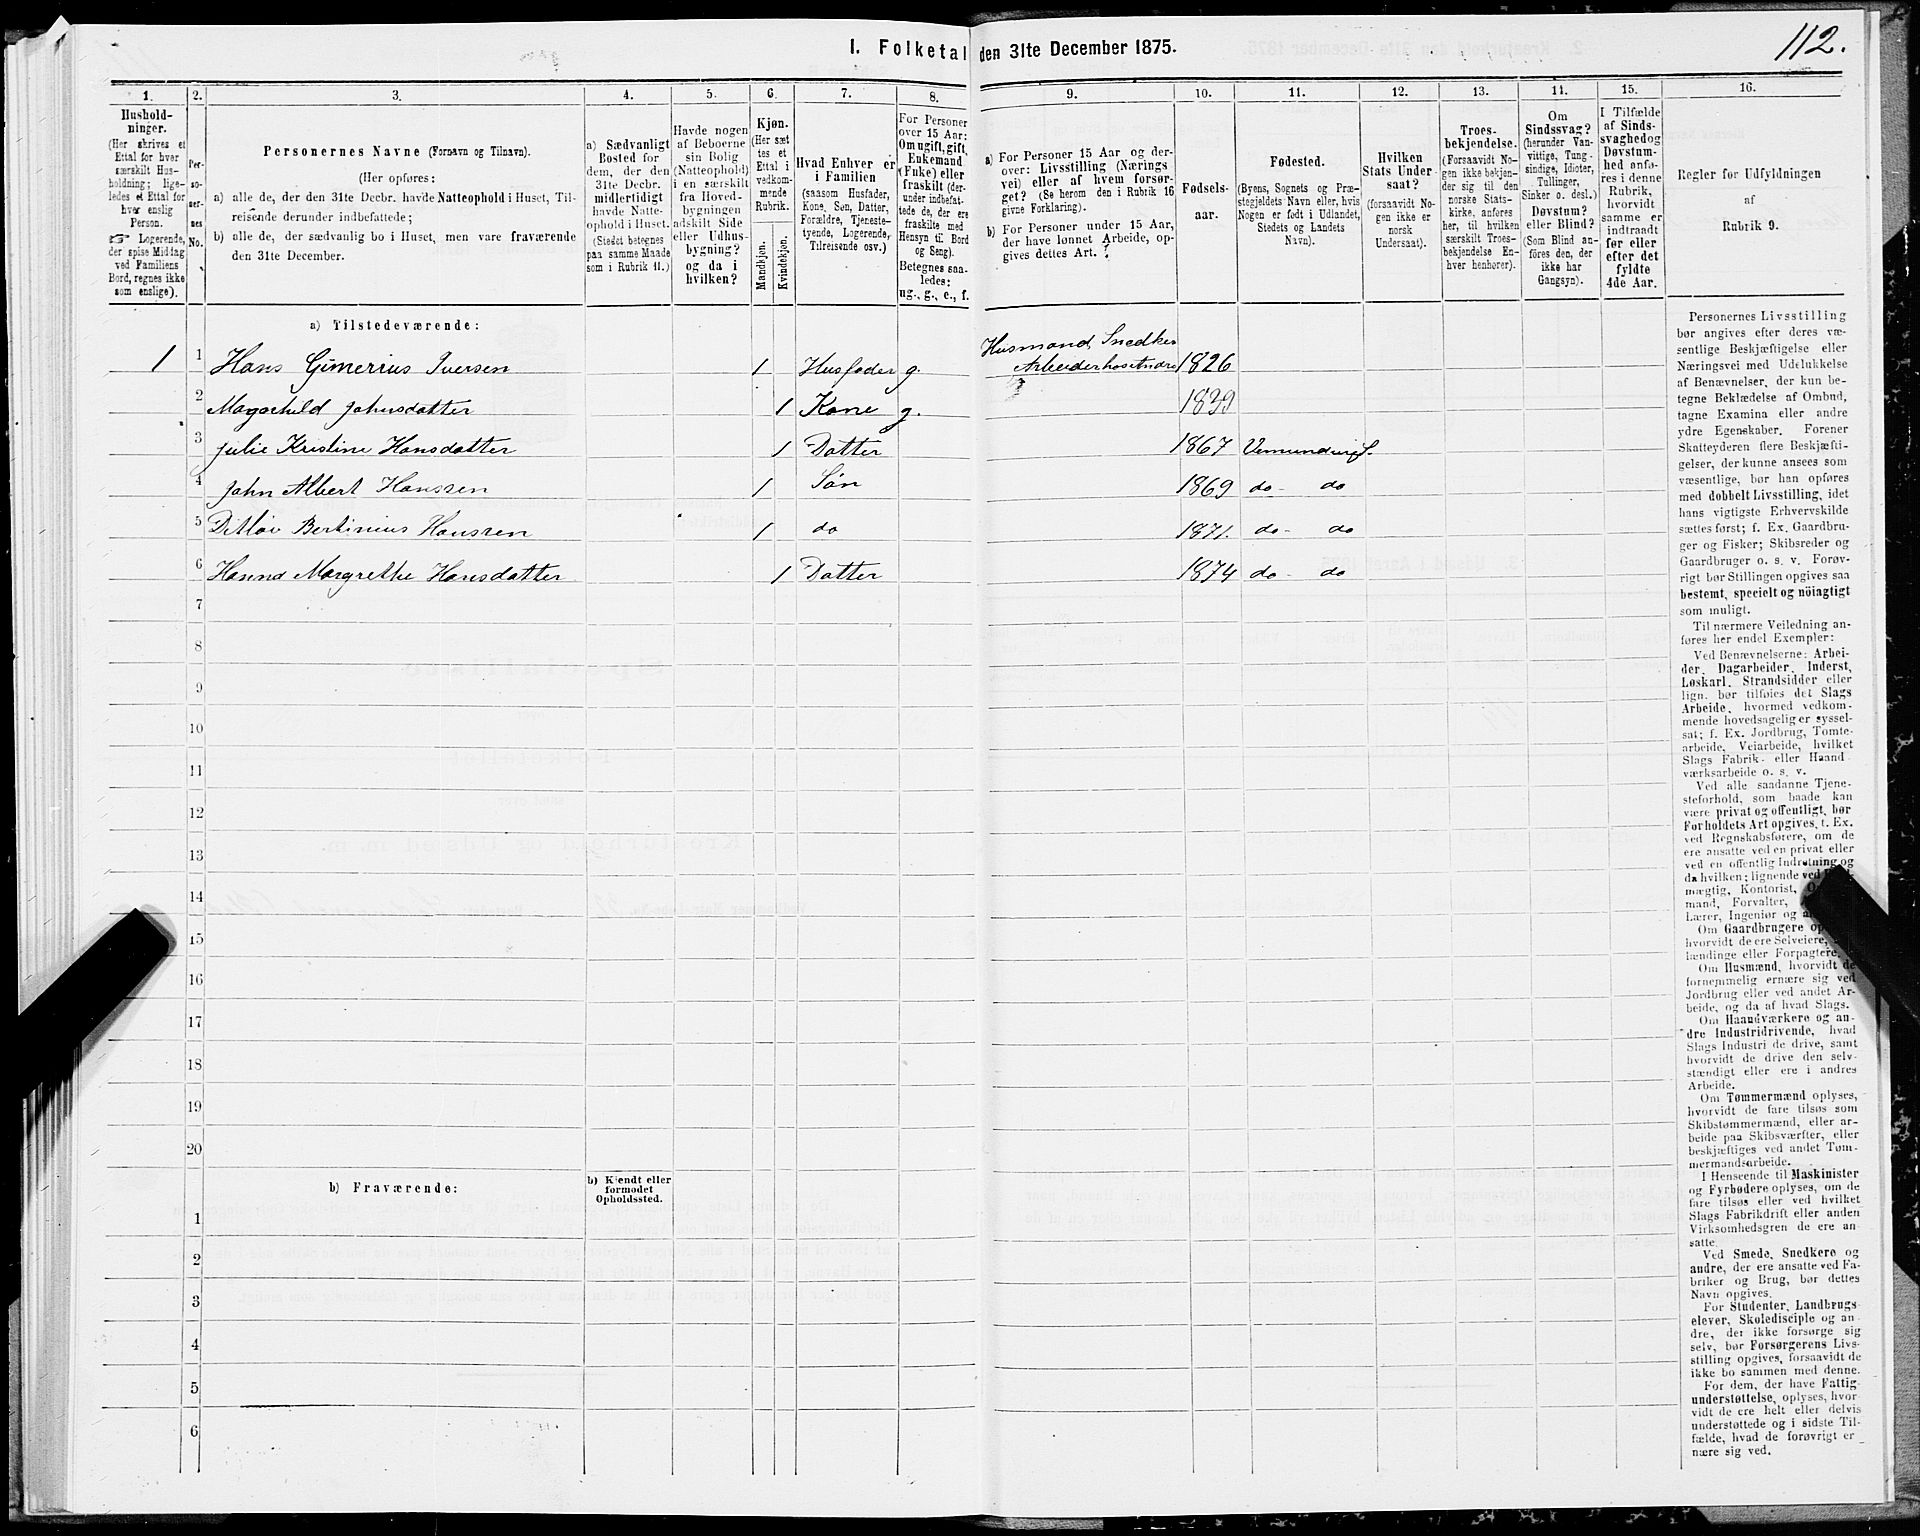 112.
I. Folketal den 31te December 1875.
1.
Hushold-
ninger.
(Her skrives et
Ettal for hver
særskilt Hus-
holdning; lige-
ledes et Ettal for
hver enslig
Person.
☞ Logerende,
der spise Middag
ved Familiens
Bord, regnes ikke
som enslige).
2.
Per-
so-
ner-
nes
No.
3.
Personernes Navne (Fornavn og Tilnavn).
(Her opføres:
a) alle de, der den 31te Decbr. havde Natteophold i Huset, Til-
reisende derunder indbefattede;
b) alle de, der sædvanlig bo i Huset, men vare fraværende
den 31te December.
4.
a) Sædvanligt
Bosted for
dem, der den
31te Decbr.
midlertidigt
havde Natte-
ophold i Huset.
(Stedet betegnes
paa samme Maade
som i Rubrik 11.)
5.
Havde nogen
af Beboerne
sin Bolig
(Natteophold)
i en særskilt
fra Hoved-
bygningen
adskilt Side
eller Udhus-
bygning?
og da i
hvilken?
6.
Kjøn.
(Her sæt
tes et
Ettal i
vedkom-
mende
Rubrik.
Mandkjøn.
Kvindekjøn.
7.
Hvad Enhver er
i Familien
(saasom Husfader,
Kone, Søn, Datter,
Forældre, Tjeneste-
tyende, Logerende,
Tilreisende osv.)
8.
For Personer
over 15 Aar:
Om ugift, gift,
Enkemand
(Enke) eller
fraskilt (der-
under indbefat-
tede de, der ere
fraskilte med
Hensyn til Bord
og Seng).
Betegnes saa-
ledes:
ug., g., e., f.
9.
a) For Personer 15 Aar og der-
over: Livsstilling (Nærings
vei) eller af hvem forsør-
get? (Se herom den i Rubrik 16
givne Forklaring).
b) For Personer under 15 Aar,
der have lønnet Arbeide, op-
gives dettes Art.
10.
Fødsels-
aar.
11.
Fødested.
(Byens, Sognets og Præ-
stegjeldets Navn eller, hvis
Nogen er født i Udlandet,
Stedets og Landets
Navn).
12.
Hvilken
Stats Under-
saat?
(forsaavidt No-
gen ikke er
norsk
Undersaat).
13.
Troes-
bekjendelse.
(Forsaavidt No-
gen ikke bekjen-
der sig til den
norske Stats-
kirke, anføres
her, til hvilken
særskilt Troes-
bekjendelse En-
hver henhører).
11.
Om
Sindssvag?
(herunder Van-
vittige, Tung-
sindige, Idioter,
Tullinger,
Sinker o. desl.)
Døvstum?
eller Blind?
(Som Blind an-
føres den, der
ikke har
Gangsyn).
15.
I Tilfælde
af Sinds-
svaghed og
Døvstum-
hed anfø-
res i denne
Rubrik,
hvorvidt
samme er
indtraadt
før eller
efter det
fyldte
4de Aar.
16.
Regler for Udfyldningen
af
Rubrik 9.
a) Tilstedeværende:
1 1 Hans Gimerius Iversen 1 Husfader g. Husmand, Snedker Arbeider hos Andre 1826
2 Magnhild Johnsdatter 1 Kone g. 1839
3 Julie Kristine Hansdatter 1 Datter 1867
4 John Albert Hanssen 1 Søn 1869 do- do
5 Ditløv Bertinius Hanssen 1 do 1871. do- do
6 Hanna Margrethe Hansdatter 1 Datter 1874 do- do
7
8
9
10
11
12
13
14
15
16
17
18
19
20
b) Fraværende:
b) Kjendt eller
formodet
Opholdssted.
1
2
3
4
5
6
Personernes Livsstilling
bør angives efter deres væ-
sentlige Beskjæftigelse eller
Næringsvei med Udelukkelse
af Benævnelser, der kun be-
tegne Beklædelse af Ombud,
tagne Examina eller andre
ydre Egenskaber. Forener
Skatteyderen flere Beskjæfti-
gelser, der kunne ansees som
væsentlige, bør han opføres
med dobbelt Livsstilling, idet
hans vigtigste Erhvervskilde
sættes først; f. Ex. Gaardbru-
ger og Fisker; Skibsreder og
Gaardbruger o. s. v. Forøv-
rigt bør Stillingen opgives saa
bestemt, specielt og nöiagtigt
som muligt.
Til nærmere Veiledning an-
føres her endel Exempler:
Ved Benævnelserne: Arbei-
der, Dagarbeider, Inderst,
Løskarl, Strandsidder eller
lign. bør tilføies det Slags
Arbeide, hvormed vedkom-
mende hovedsagelig er syssel-
sat; f. Ex. Jordbrug, Tomte-
arbeide, Veiarbeide, hvilket
Slags Fabrik- eller Haand-
værksarbeide o. s. v.
Ved alle saadanne Tjene-
steforhold, som baade kan
være privat og offentligt, bør
Forholdets Art opgives, t. Ex.
ved Regnskabsførere, om de
ere ansatte ved en privat eller
ved en offentlig Indretning og
da hvilken; lignende ved
mægtig, Kontorist,
mand, Forvalter,
Lærer, Ingeniør og
Om Gaardbrugere
hvorvidt de ere Selveiere,
lændinge eller Forpagtere.
Om Husmænd, hvorvidt de
fornemmelig ernære sig ved
Jordbrug eller ved andet Ar-
beide, og da af hvad Slags.
Om Haandværkere og an-
dre Industridrivende, hvad
Slags Industri de drive, samt
hvorvidt de drive den selv-
stændigt eller ere i andres
Arbeide.
Om Tømmermænd oplyses,
hvorvidt de fare tilsøs som
Skibstømmermænd, eller ar-
beide paa Skibsværfter, eller
beskjæftiges ved andet Tøm-
mermandsarbeide.
I Henseende til Maskinister
og Fyrbødere oplyses, om de
fare tilsøs eller ved hvilket
Slags Fabrikdrift eller anden
Virksomhedsgren de ere an-
satte.
Ved Smede, Snedkere og
andre, der ere ansatte ved Fa-
briker og Brug, bør dettes
Navn opgives.
For Studenter, Landbrugs-
elever, Skoledisciple og an-
dre, der ikke forsørge sig
selv, bør Forsørgerens Livs-
stilling opgives, forsaavidt de
ikke bo sammen med denne.
For dem, der have Fattig-
understøttelse, oplyses, hvor-
vidt de ere helt eller delvis
understøttede og i sidste Til-
fælde, hvad de forøvrigt er-
nære sig ved.